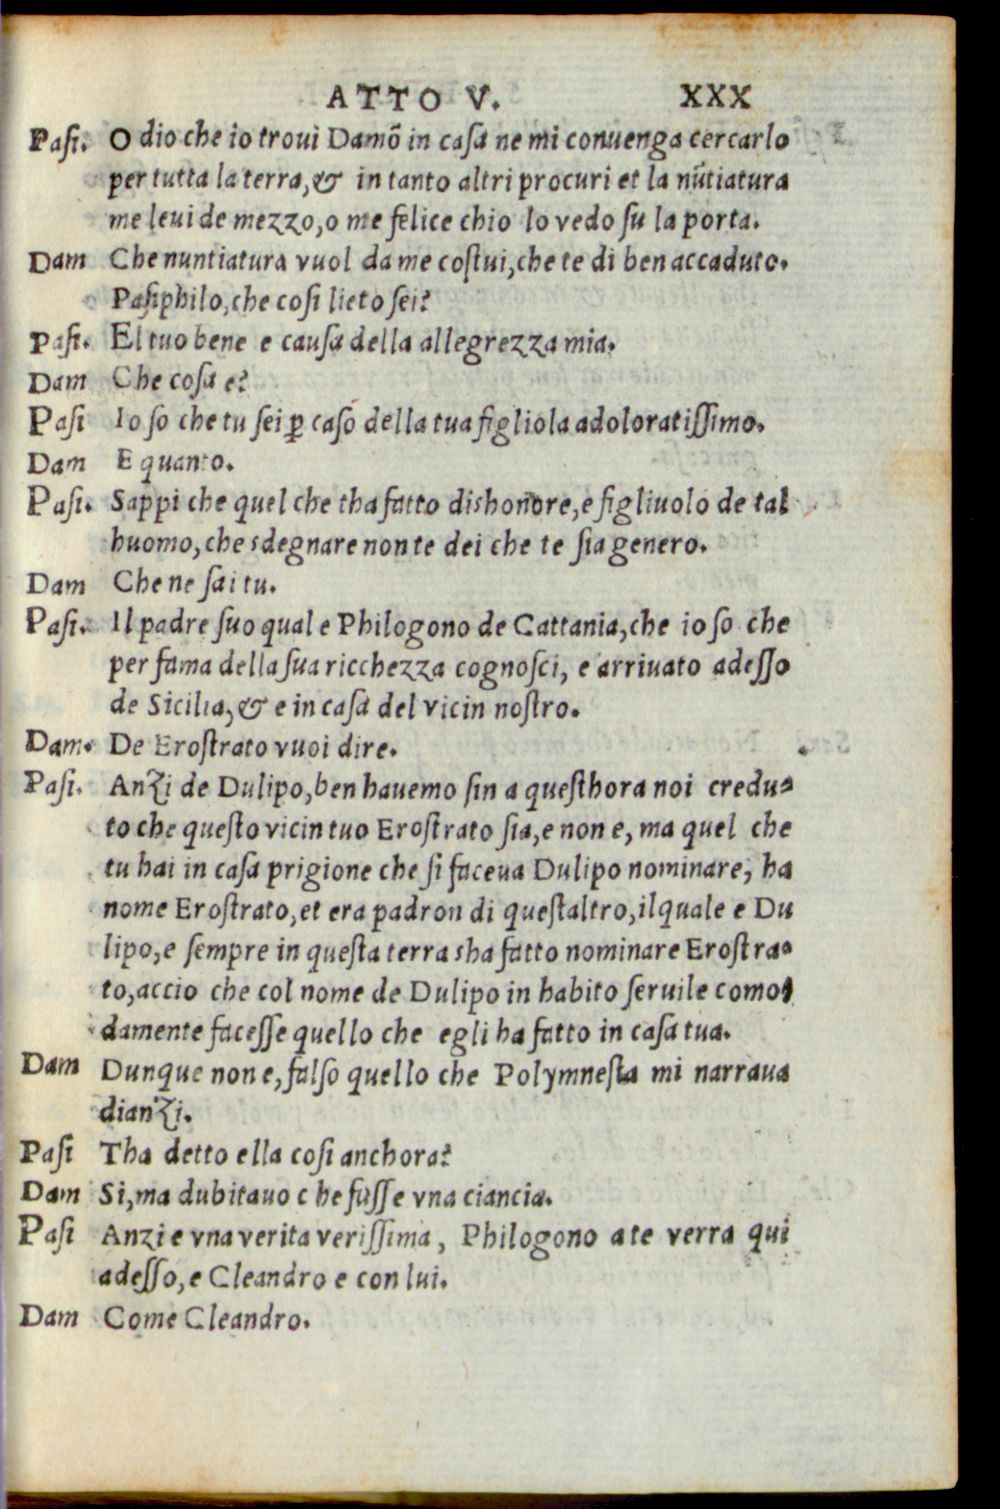 ATTO V. XXX
Pasi. O dio che io trovi Damõ in casa ne mi convenga cercarlo
per tutta la terra, & in tanto altri procuri et la nũtiatura
me levi de mezzo, o me felice chio lo vedo su la porta.
Dam Che nuntiatura vuol da me costui, che te di ben accaduto.
Pasiphilo, che cosi lieto sei?
Pasi. El tuo bene e causa della allegrezza mia.
Dam Che cosa e?
Pasi Io so che tu sei ꝑ caso della tua figliola adoloratissimo.
Dam E quanto.
Pasi. Sappi che quel che tha fatto dishonore, e figliuolo de tal
huomo, che sdegnare non te dei che te sia genero.
Dam Che ne sai tu.
Pasi. Il padre suo qual e Philogono de Cattania, che io so che
per fama della sua ricchezza cognosci, e arrivato adesso
de Sicilia, & e in casa del vicin nostro.
Dam. De Erostrato vuoi dire.
Pasi. Anzi de Dulipo, ben havemo sin a questhora noi credu-
to che questo vicin tuo Erostrato sia, e non e, ma quel che
tu hai in casa prigione che si faceva Dulipo nominare, ha
nome Erostrato, et era padron di questaltro, ilquale e Du
lipo, e sempre in questa terra sha fatto nominare Erostra-
to, accio che col nome de Dulipo in habito servile como-
damente facesse quello che egli ha fatto in casa tua.
Dam Dunque non e, falso quello che Polymnesta mi narrava
dianzi.
Pasi Tha detto ella cosi anchora?
Dam Si, ma dubitavo che fusse vna ciancia.
Pasi Anzi e vna verita verissima, Philogono a te verra qui
adesso, e Cleandro e con lui.
Dam Come Cleandro.